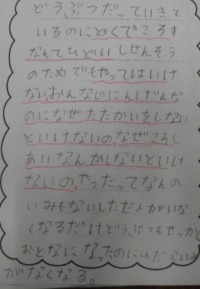 どうぶつだっていきて
いるのにどくでころす
なんてひどいしせんそう
のためでもやってはいけ
ないおんなじにんげんな
のになぜたたかいをしない
といけないの、なぜころし
あいなんかしないといけ
ないの、やったってなんの
いみもないしただ人がいな
くなるだけどうぶつもせっかく
おとなになったのに
がなくなる。